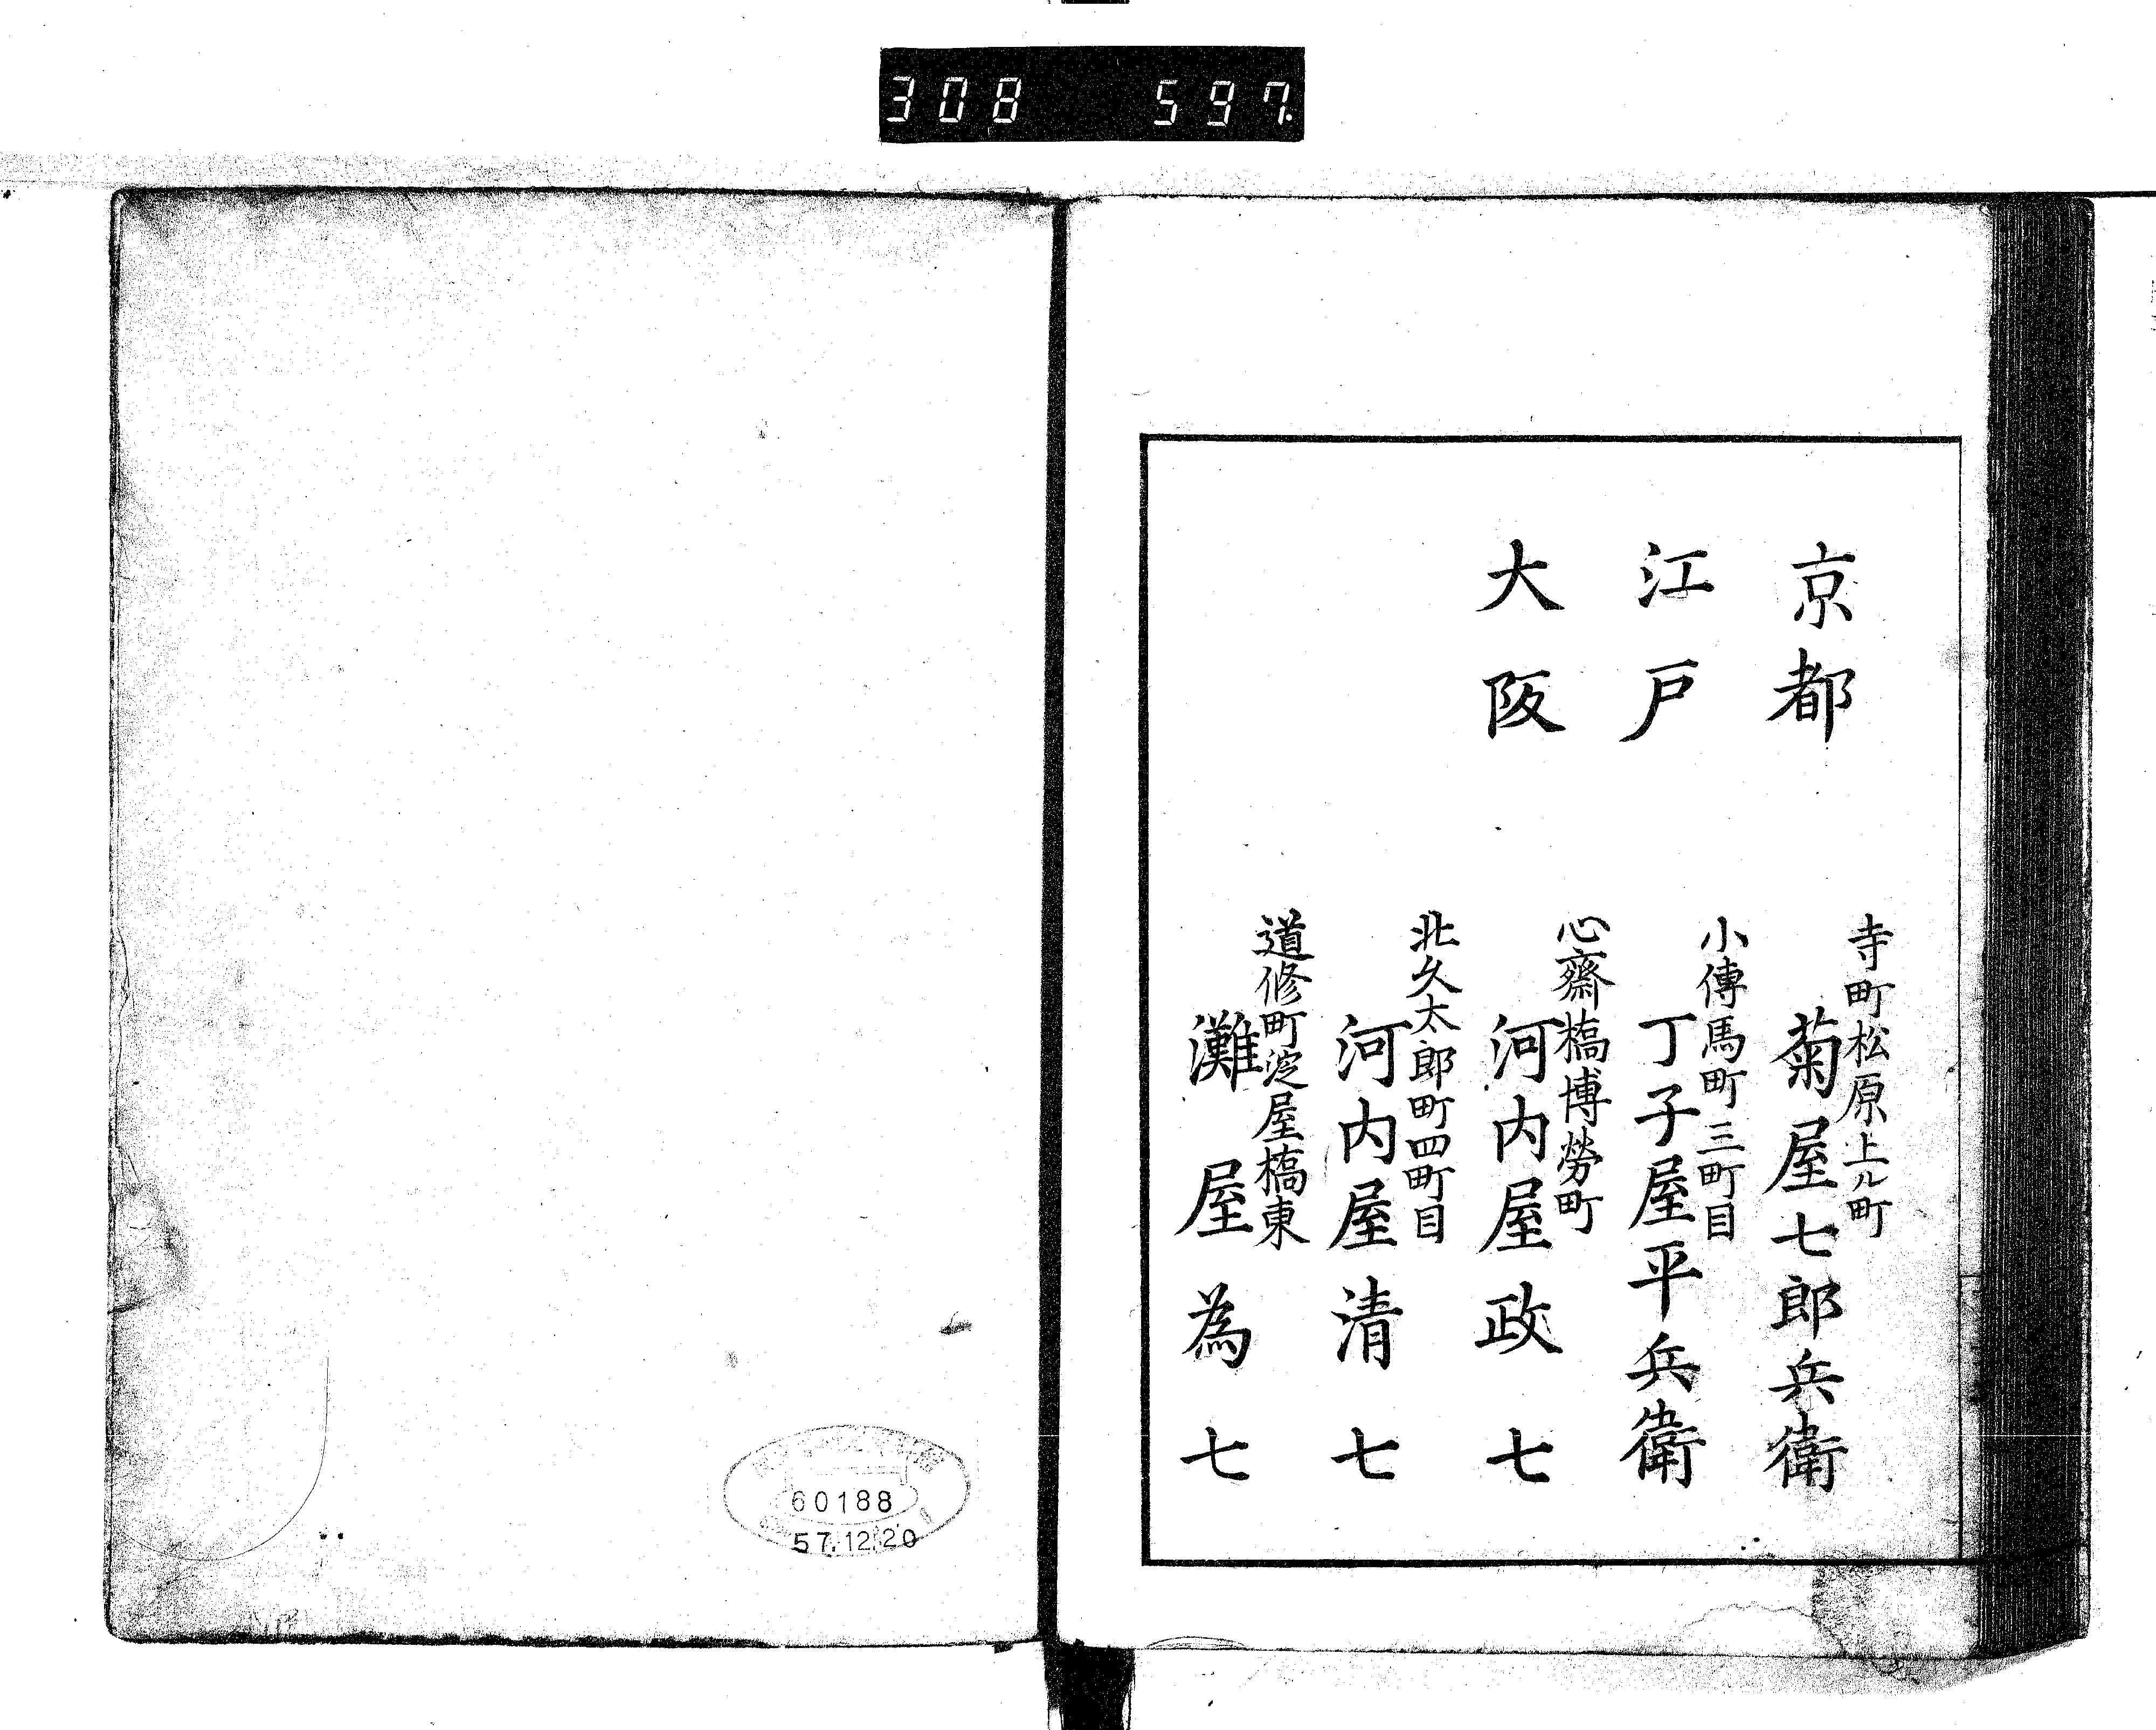 308 597.
京都
寺町松原上ル町
菊屋七郎兵衛
江戸
小傳馬町三町目
丁子屋平兵衛
大阪
心齋橋博勞町
河内屋政七
北久太郎町四町目
河内屋清七
道修町淀屋橋東
灘屋為七
60188
57.12.20